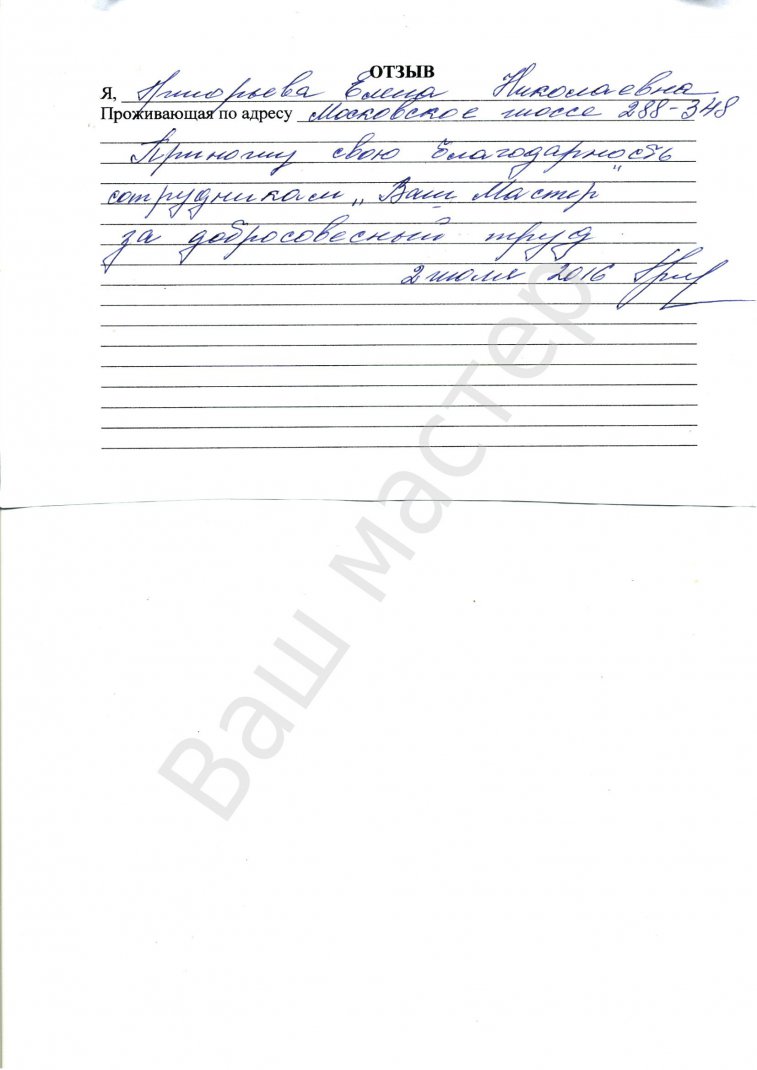 ОТЗЫВ
Я, Григорьева Елена Николаевна
Проживающая по адресу Московское шоссе 288-348
Приношу свою благодарность
сотрудникам „Ваш Мастер"
за добросовесный труд
2 июля 2016
Ваш мастер